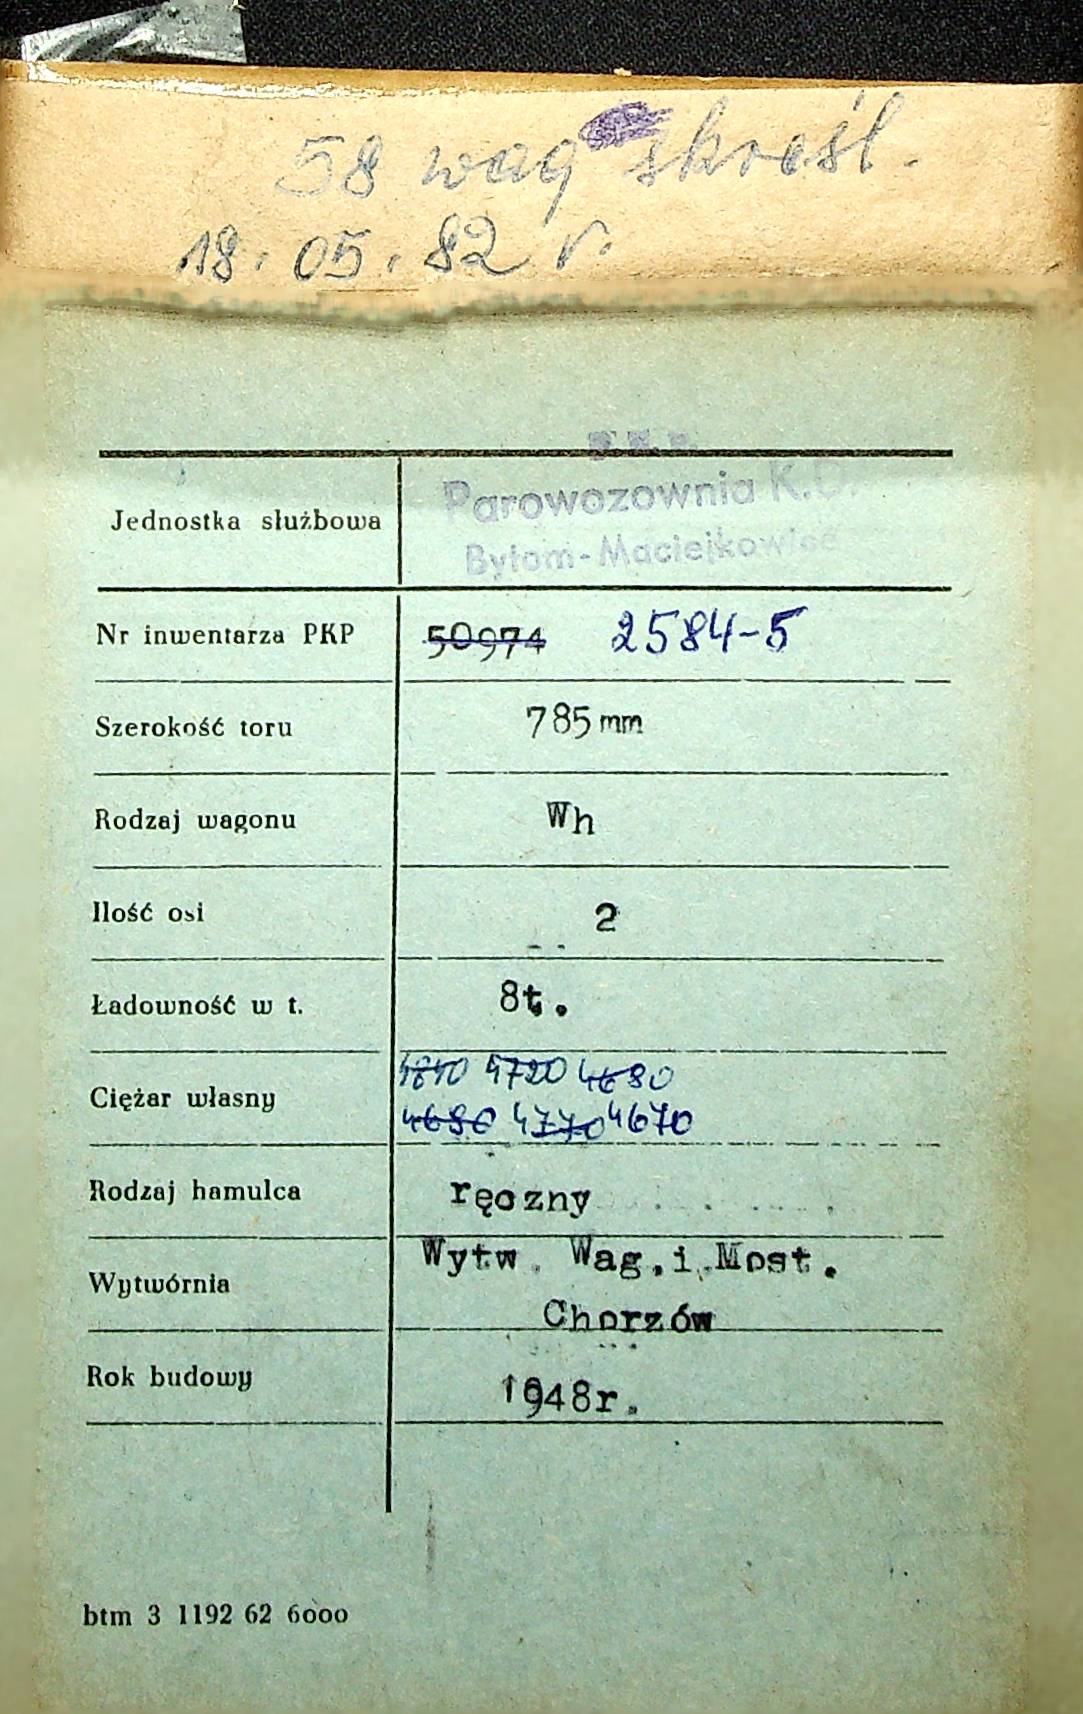 58 wag skreśl.
18.05.82 r.
P.K.P.
Jednostka służbowa Parowozownia K.D.
Bytom-Maciejkowice
Nr inwentarza PKP 50974 2584-5
Szerokość toru 785 mm
Rodzaj wagonu Wh
Ilość osi 2
Ładowność w t. 8t.
4720 4680
Ciężar własny 4680 4770 4670
Rodzaj hamulca ręczny
Wytw. Wag.i.Most.
Wytwórnia Chorzów
Rok budowy 1948r.
btm 3 1192 62 6000